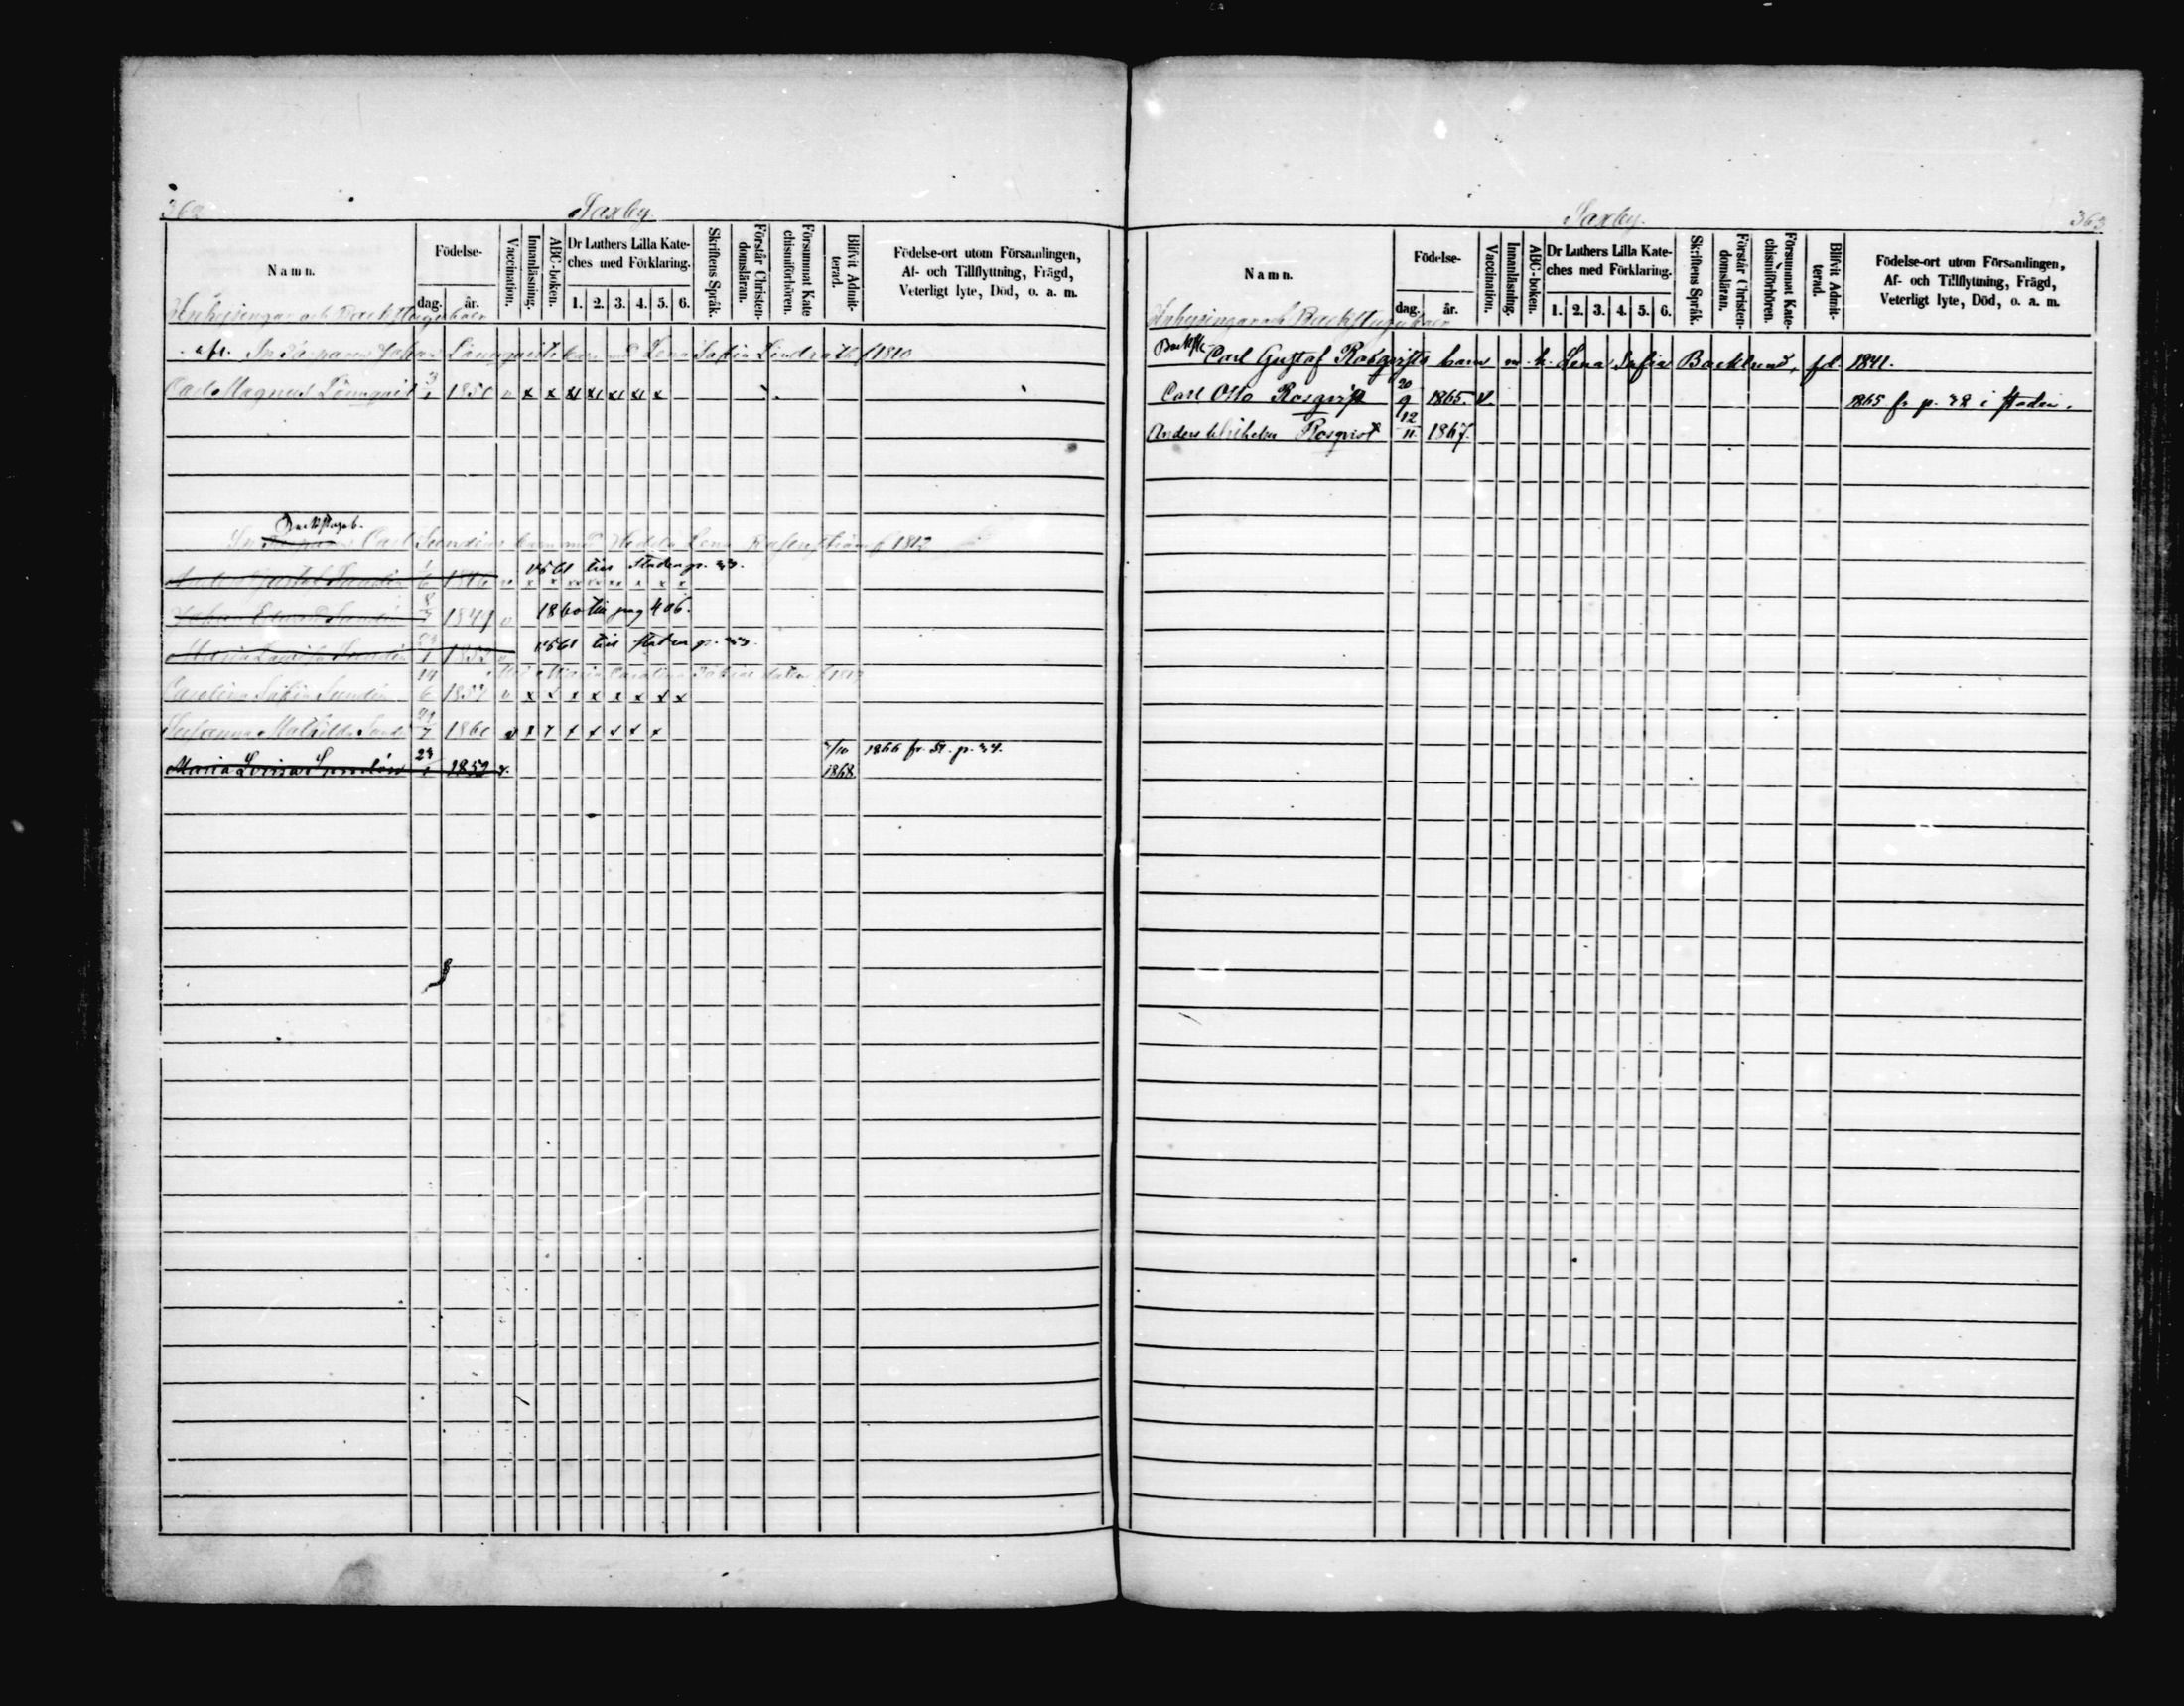 362
Saxby.
Namn.
Födelse-
dag. år.
Vaccination.
Innanläsning.
ABC-boken.
Dr Luthers Lilla Kate-
ches med Förklaring.
1. 2. 3. 4. 5. 6.
Skriftens Språk.
Förstår Christen-
domsläran.
Försummat Kate
chismiförhören.
Blifvit Admit-
terad.
Födelse-ort utom Församlingen,
Af- och Tillflyttning, Frägd,
Veterligt lyte, Död, o. a. m.
Inhysingar och Backstuguboer
Johan Lönnqvists barn med Lena Sofia f 1810
Carl Magnus Lönnqvist 3/1 1850 v x x x x x x x
Backstugub.
Carl Sundéns barn med Hedda Lena f 1812
Gustaf Sundén 1/6 v 1861 till Staden p.
x x x x x x x x
Johan Edvard Sundén 8 v 1860 till pag 406.
Maria Lovisa Sundén 23/1 1852 v 1861 till staden p.
Med Maria Carolina
Carolina Sofia Sundén 14/6 1857 v x x x x x x x x
Mathilda 1860 v x x x x x x x
Maria Lovisa Sundén 23/1 1852 v. /10 1868 1866 fr. St. p.
Saxby.
363
Namn.
Födelse-
dag. år.
Vaccination.
Innanläsning.
ABC-boken.
Dr Luthers Lilla Kate-
ches med Förklaring.
1. 2. 3. 4. 5. 6.
Skriftens Språk.
Förstår Christen-
domsläran.
Försummat Kate-
chismiförhören.
Blifvit Admit-
terad.
Födelse-ort utom Församlingen,
Af- och Tillflyttning, Frägd,
Veterligt lyte, Död, o. a. m.
Inhysingar och Backstuguboer
Carl Gustaf Rosqvists barn m. h. Lena Sofia Backlund, fd. 1841.
Carl Otto Rosqvist 20/9 1865. v. 1865 fr p. i staden.
Anders Wilhelm Rosqvist 12/11 1867.